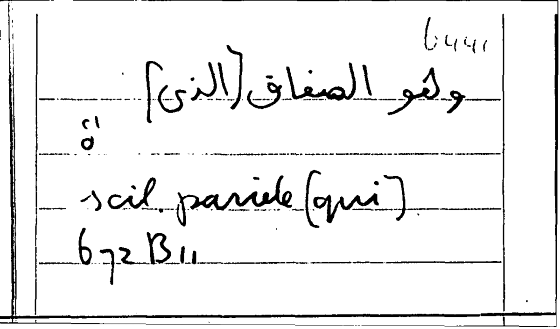 6441
وهو الصفاق [الذى]
ὅ
scil. pariete [qui]
672 B 11